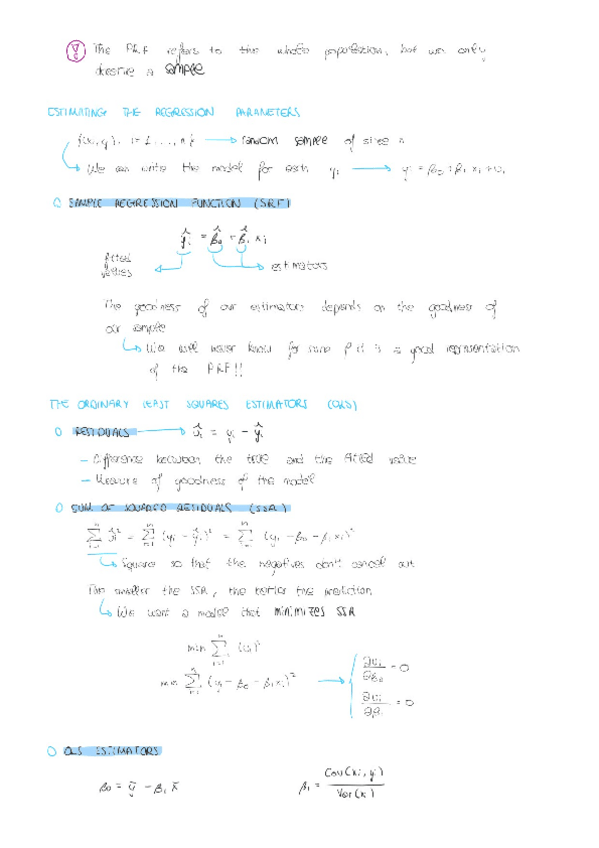 The PRF refers to the whole population, but we only
observe a sample
ESTIMATING THE REGRESSION PARAMETERS
{(xi, yi): i = 1, ..., n} → random sample of size n
We can write the model for each yi → yi = β0 + β1 xi + ui
SAMPLE REGRESSION FUNCTION (SRF)
ŷi = β̂0 + β̂1 xi
fitted values
estimators
The goodness of our estimators depends on the goodness of
our sample
We will never know for sure if it is a good representation
of the PRF!!
THE ORDINARY LEAST SQUARES ESTIMATORS (OLS)
RESIDUALS → ûi = yi - ŷi
- Difference between the true and the fitted value
- Measure of goodness of the model
SUM OF SQUARED RESIDUALS (SSR)
∑ ûi² = ∑ (yi - ŷi)² = ∑ (yi - β0 - β1xi)²
Square so that the negatives don't cancel out
The smaller the SSR, the better the prediction
We want a model that minimizes SSR
min ∑ (ui)²
min ∑ (yi - β0 - β1xi)² →
∂ui/∂β0 = 0
∂ui/∂β1 = 0
OLS ESTIMATORS
β0 = ȳ - β1 x̄
β1 = Cov(xi, yi) / Var(x)